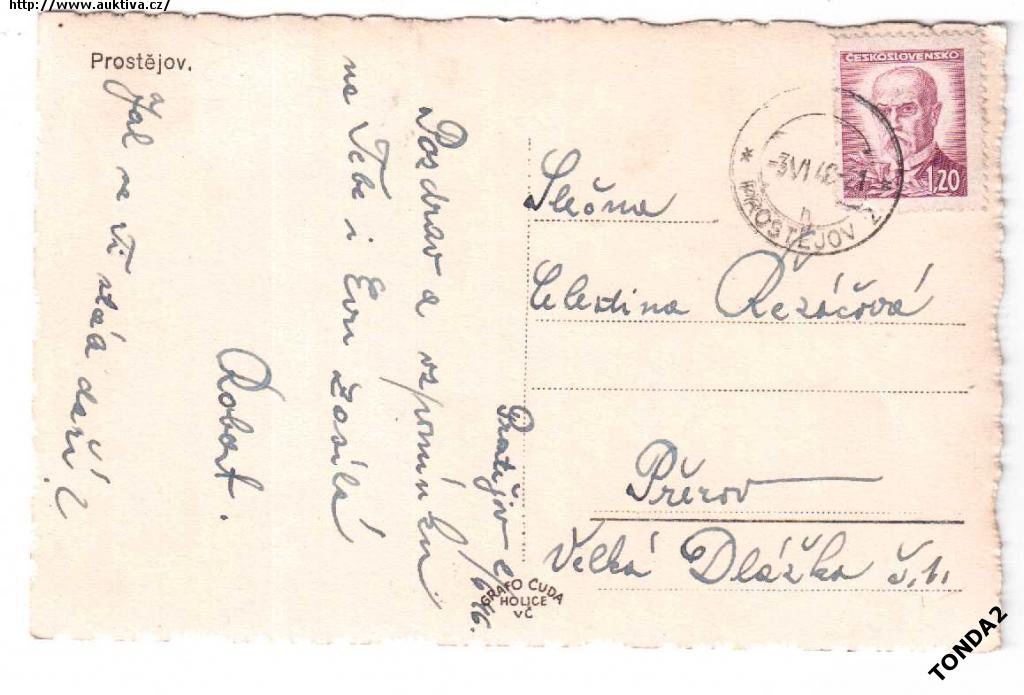 http://www.auktiva.cz/
Prostějov.
Prostějov 2/6 46.
Pozdrav a vzpomínku
na Tebe i Evu zasílá
Robert.
Jak se Ti stád daří?
ČESKOSLOVENSKO
1,20
-3.VI.46-21
PROSTĚJOV 2
Slečna
Celestina Řezáčová
Přerov
Velká Dlážka č. 11.
GRAFO ČUDA
HOLICE
VČ
TONDA2